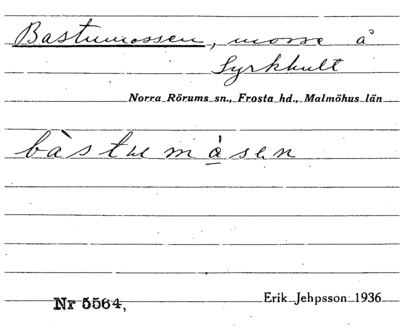 Bastumossen, mosse å
Syrkhult
Norra Rörums sn., Frosta hd., Malmöhus län
bàstu måsen
Nr 5564,
Erik Jehpsson 1936